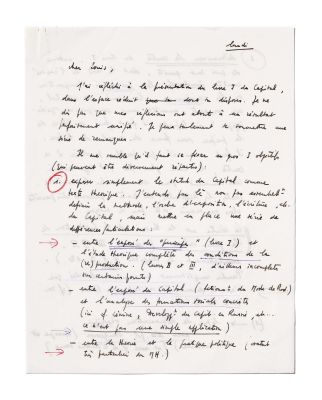 lundi
Cher Louis,
J'ai réfléchi à la présentation du livre I du Capital,
dans l'espace réduit dont tu disposes. Je ne
dis pas que mes réflexions ont abouti à un résultat
parfaitement unifié. Je peux seulement te soumettre une
série de remarques.
Il me semble qu'il faut se fixer en gros 3 objectifs
(qui peuvent être diversement répartis) :
1. exposer simplement le statut du Capital comme
texte théorique. J'entends par là non pas
définir la méthode, l'ordre d'exposition, l'écriture, etc.
du Capital, mais mettre en place une série de
différences/articulations :
– entre l'exposé des "principes" (livre I) et
l'étude théorique complète des conditions de la
(re)production. (livres II et III, d'ailleurs incomplets
en certains points)
– entre l'exposé du Capital (du Mode de Prod)
et l'analyse des formations sociales concrètes
(ici cf Lénine, "Développt du Capit. en Russie, etc...
ce n'est pas une simple application)
– entre la théorie et la pratique politique (statut
très particulier du MH..)